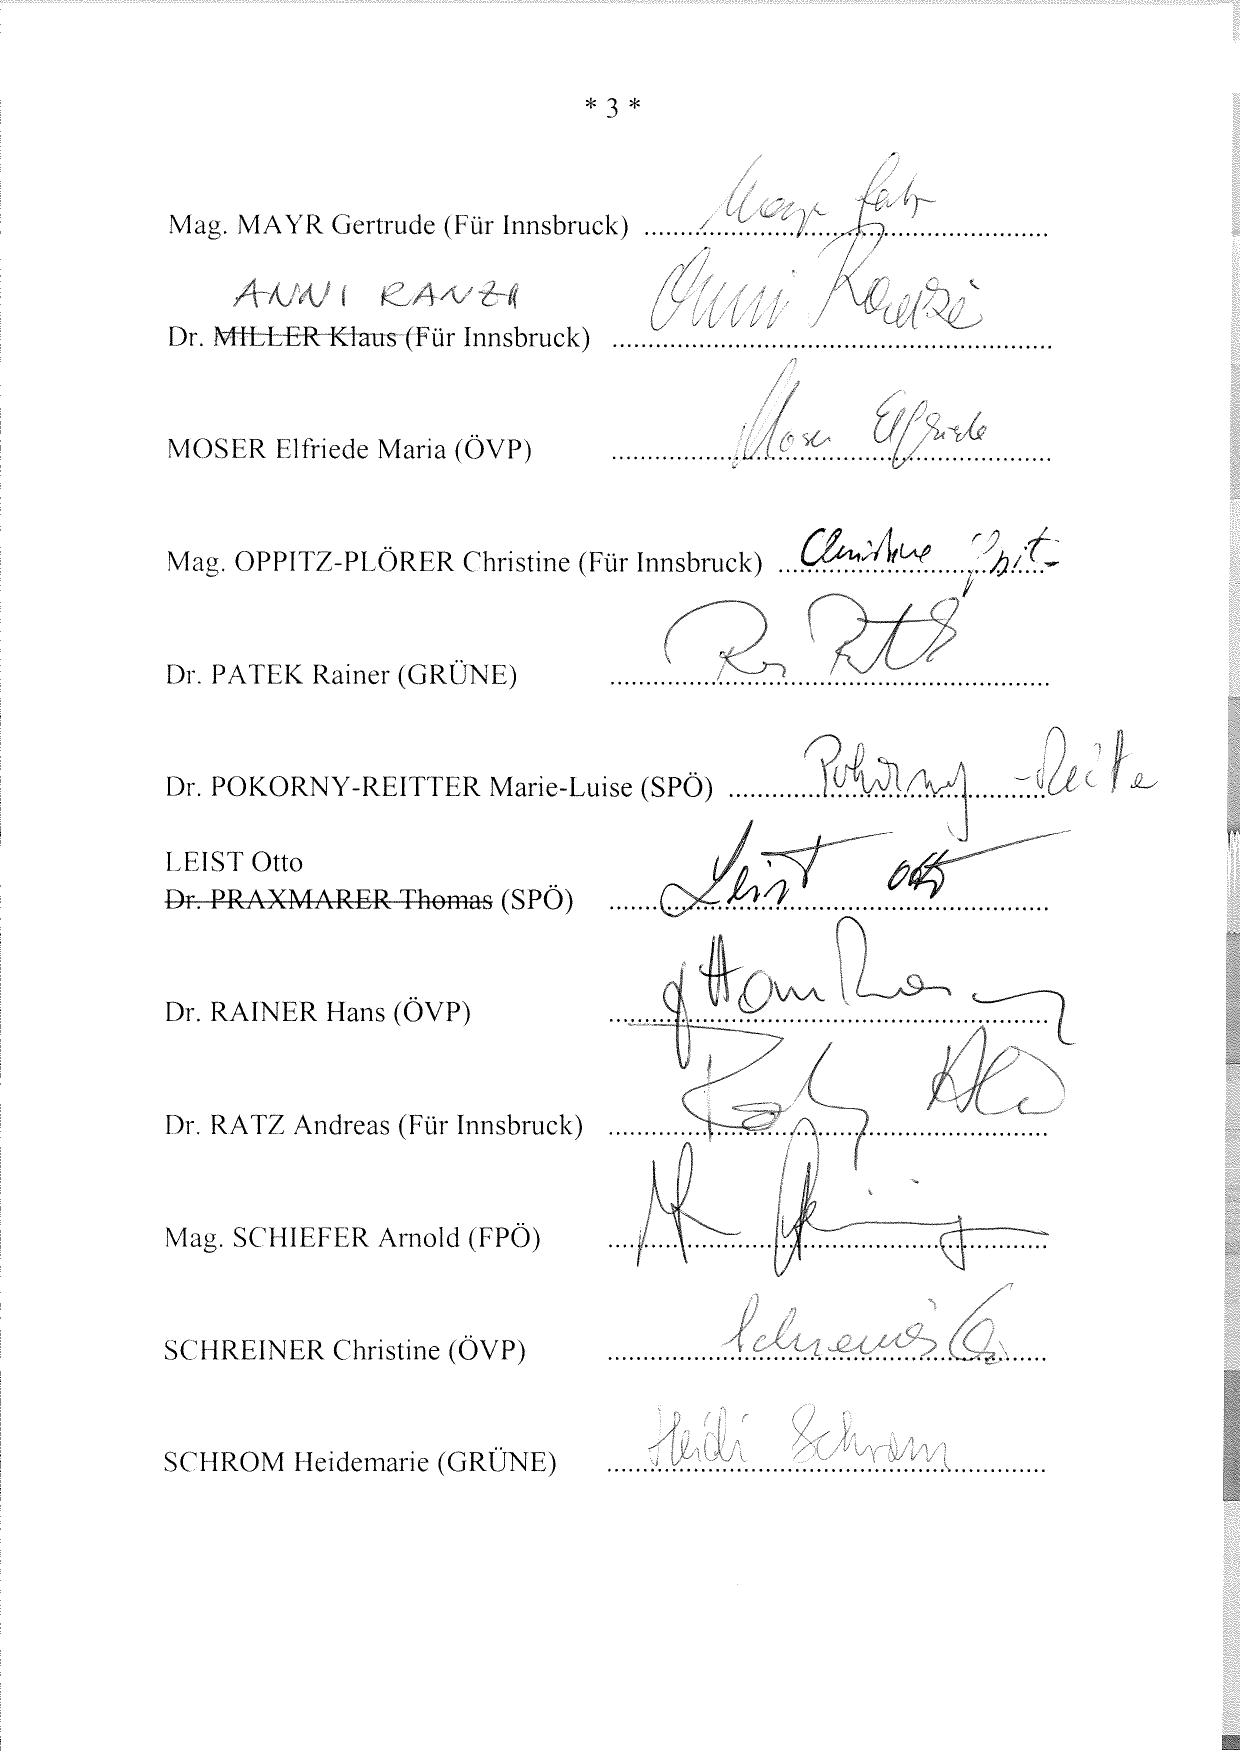 * 3 *
Mag. MAYR Gertrude (Für Innsbruck) ........ Mayr
ANNI RANZI
Dr. MILLER Klaus (Für Innsbruck) ........ Anni Ranzi
MOSER Elfriede Maria (ÖVP) ........ Moser Elfriede
Mag. OPPITZ-PLÖRER Christine (Für Innsbruck) ........ Christine
Dr. PATEK Rainer (GRÜNE) ........
Dr. POKORNY-REITTER Marie-Luise (SPÖ) ........ Pokorny-Reitter
LEIST Otto
Dr. PRAXMARER Thomas (SPÖ) ........ Leist Otto
Dr. RAINER Hans (ÖVP) ........
Dr. RATZ Andreas (Für Innsbruck) ........
Mag. SCHIEFER Arnold (FPÖ) ........
SCHREINER Christine (ÖVP) ........ Schreiner
SCHROM Heidemarie (GRÜNE) ........ Heidi Schrom